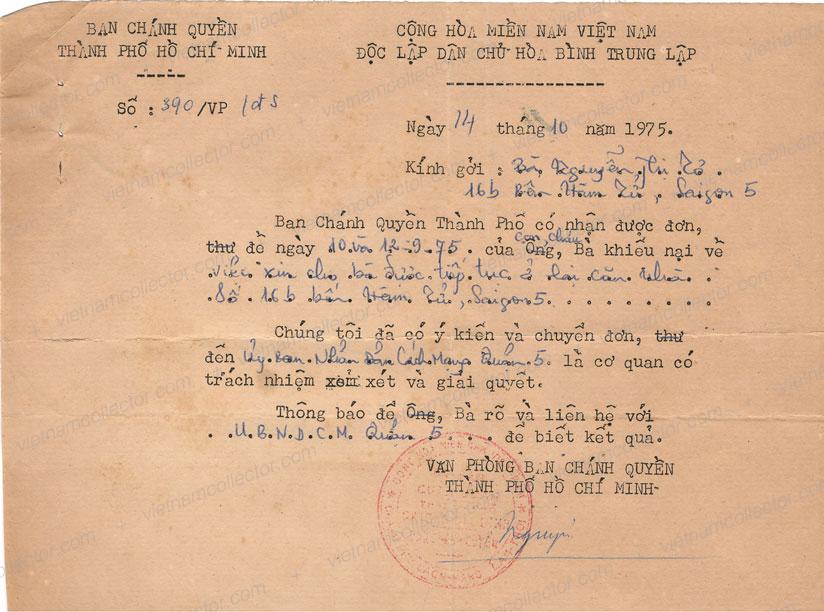 BAN CHÁNH QUYỀN
THÀNH PHỐ HỒ CHÍ MINH
Số : 390/VP/đs
CỘNG HÒA MIỀN NAM VIỆT NAM
ĐỘC LẬP DÂN CHỦ HÒA BÌNH TRUNG LẬP
Ngày 14 tháng 10 năm 1975.
Kính gởi : Bà Nguyễn Thị Tỏ
16b Bến Hàm Tử, Saigon 5
Ban Chánh Quyền Thành Phố có nhận được đơn,
con, cháu
thư đề ngày 10 và 12-9-75 của Ông, Bà khiếu nại về
việc xin cho bà được tiếp tục ở lại căn nhà
Số 16b bến Hàm Tử, Saigon 5
Chúng tôi đã có ý kiến và chuyển đơn, thư
đến Ủy Ban Nhân Dân Cách Mạng Quận 5. là cơ quan có
trách nhiệm xem xét và giải quyết.
Thông báo để Ông, Bà rõ và liên hệ với
U.B.N.D.C.M. Quận 5 để biết kết quả.
VĂN PHÒNG BAN CHÁNH QUYỀN
THÀNH PHỐ HỒ CHÍ MINH
vietnamcollector.com